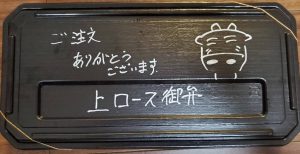 ご注文
ありがとう
ございます.
上ロース御弁